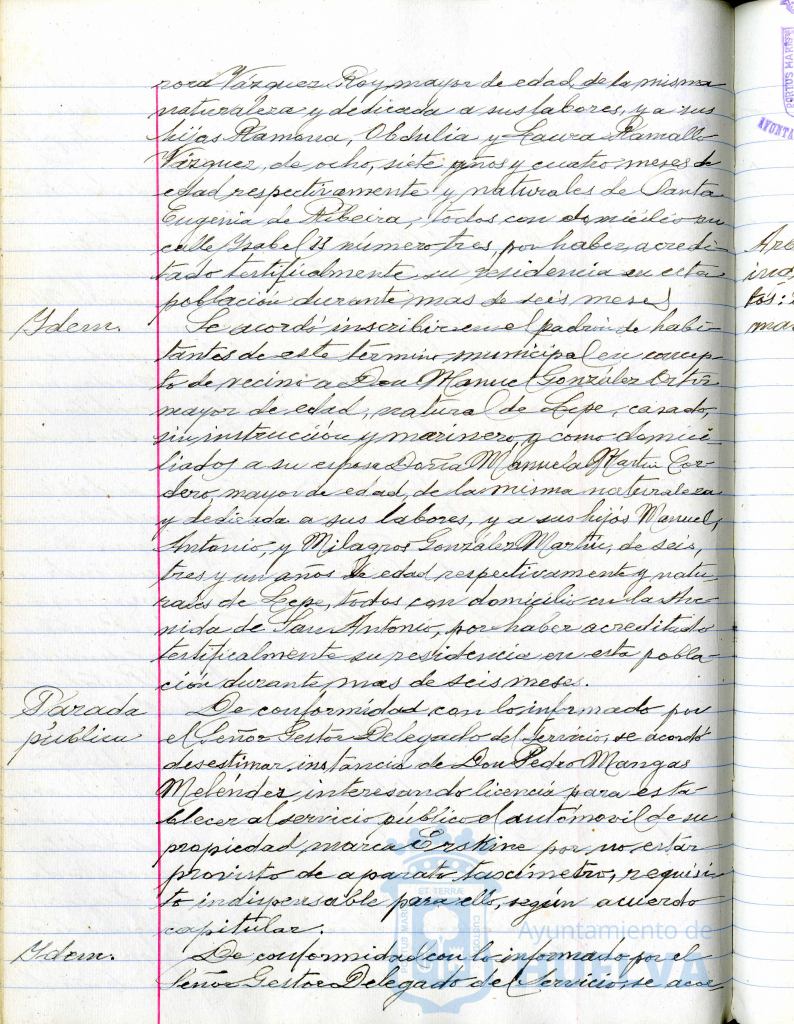 rora Vázquez Rey, mayor de edad, de la misma
naturaleza y dedicada a sus labores, y a sus
hijas Ramona, Obdulia y Laura Ramallo
Vázquez, de ocho, siete años y cuatro meses de
edad respectivamente y naturales de Santa
Eugenia de Ribeira, todos con domicilio en
calle Ysabel II número tres, por haber acredi-
tado testificalmente su residencia en esta
población durante mas de seis meses
Ydem.
Se acordó inscribir en el padrón de habi-
tantes de este termino municipal en concep-
to de vecino a Don Manuel González
mayor de edad, natural de Lepe, casado,
sin instrucción y marinero, y como domici-
liados a su esposa Doña Manuela Martín Cor-
dero, mayor de edad, de la misma naturaleza
y dedicada a sus labores, y a sus hijos Manuel,
Antonio, y Milagros González Martín, de seis,
tres y un años de edad respectivamente y natu-
rales de Lepe, todos con domicilio en la Ave-
nida de San Antonio, por haber acreditado
testificalmente su residencia en esta pobla-
ción durante mas de seis meses.
Parada
pública
De conformidad con lo informado por
el Señor Gestor Delegado del Servicio, se acordó
desestimar instancia de Don Pedro Mangas
Meléndez interesando licencia para esta-
blecer al servicio público el automovil de su
propiedad marca Erskine por no estar
provisto de aparato taxímetro, requisi-
to indispensable para ello, según acuerdo
capitular.
Ydem.
De conformidad con lo informado por el
Señor Gestor Delegado del Servicio, se acor
Ayuntamiento de
HUELVA
PORTUS MARIS
ET TERRÆ
CUSTODIA
PORTUS MARIS
AYUNTA